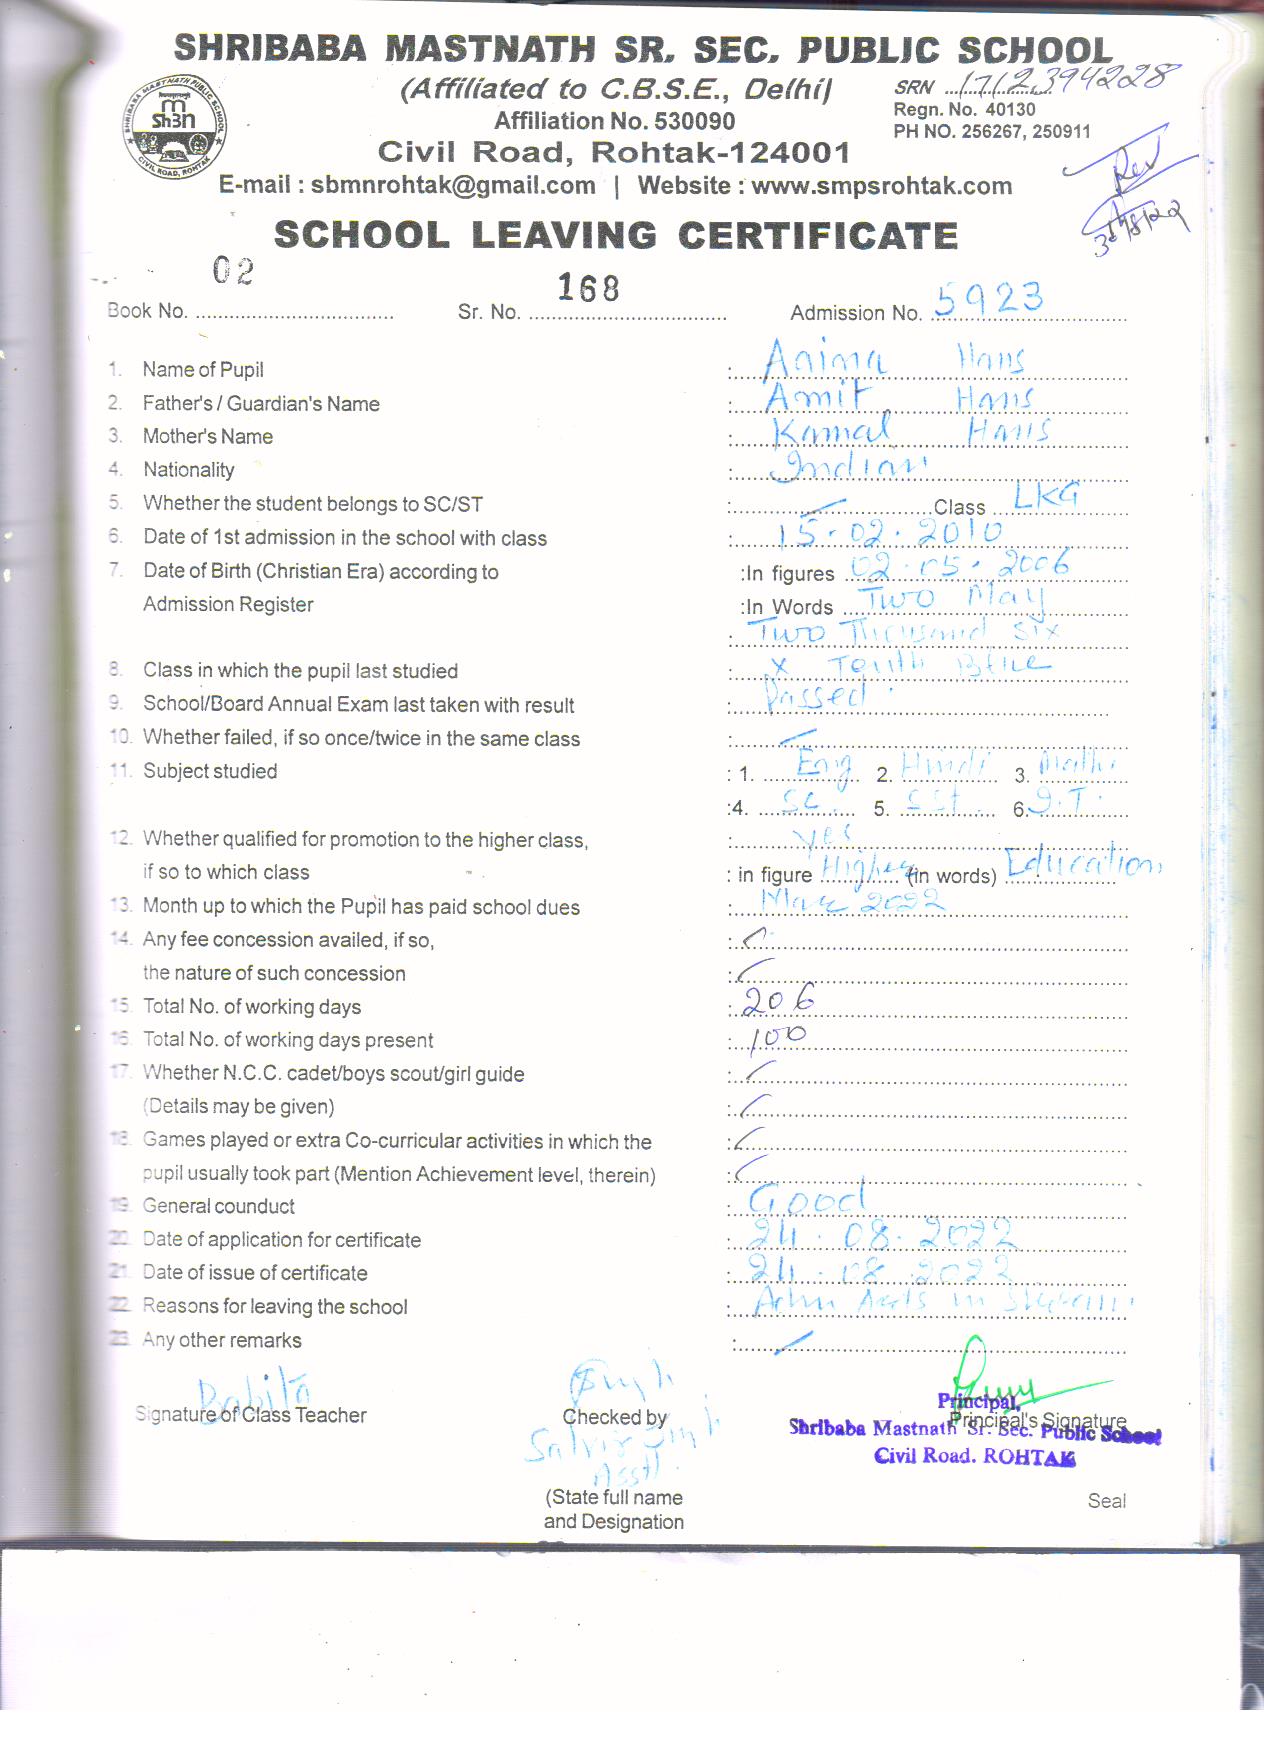 SHRIBABA MASTNATH SR. SEC. PUBLIC SCHOOL
(Affiliated to C.B.S.E., Delhi)
SRN 1712394228
Affiliation No. 530090
Regn. No. 40130
PH NO. 256267, 250911
Civil Road, Rohtak-124001
E-mail : sbmnrohtak@gmail.com | Website : www.smpsrohtak.com
SCHOOL LEAVING CERTIFICATE
Book No. 02 Sr. No. 168 Admission No. 5923
1. Name of Pupil : Hans
2. Father's / Guardian's Name : Amit Hans
3. Mother's Name : Kamal Hans
4. Nationality : Indian
5. Whether the student belongs to SC/ST : Class LKG
6. Date of 1st admission in the school with class : 15.02.2010
7. Date of Birth (Christian Era) according to :In figures 02.05.2006
Admission Register :In Words Two May
: Two Thousand Six
8. Class in which the pupil last studied : X Tenth
9. School/Board Annual Exam last taken with result : Passed
10. Whether failed, if so once/twice in the same class :
11. Subject studied : 1. Eng 2. Hindi 3. Maths
:4. Sc. 5. SSt 6. I.T.
12. Whether qualified for promotion to the higher class, : yes
if so to which class : in figure Higher (in words) Education
13. Month up to which the Pupil has paid school dues : 2022
14. Any fee concession availed, if so, :
the nature of such concession :
15. Total No. of working days : 206
16. Total No. of working days present : 100
17. Whether N.C.C. cadet/boys scout/girl guide :
(Details may be given) :
18. Games played or extra Co-curricular activities in which the :
pupil usually took part (Mention Achievement level, therein) :
19. General counduct : Good
20. Date of application for certificate : 24.08.2022
21. Date of issue of certificate : 24.08.2022
22. Reasons for leaving the school :
23. Any other remarks :
Babita
Signature of Class Teacher Checked by Principal's Signature
Principal,
Shribaba Mastnath Sr. Sec. Public School
Civil Road. ROHTAK
Asstt.
(State full name Seal
and Designation